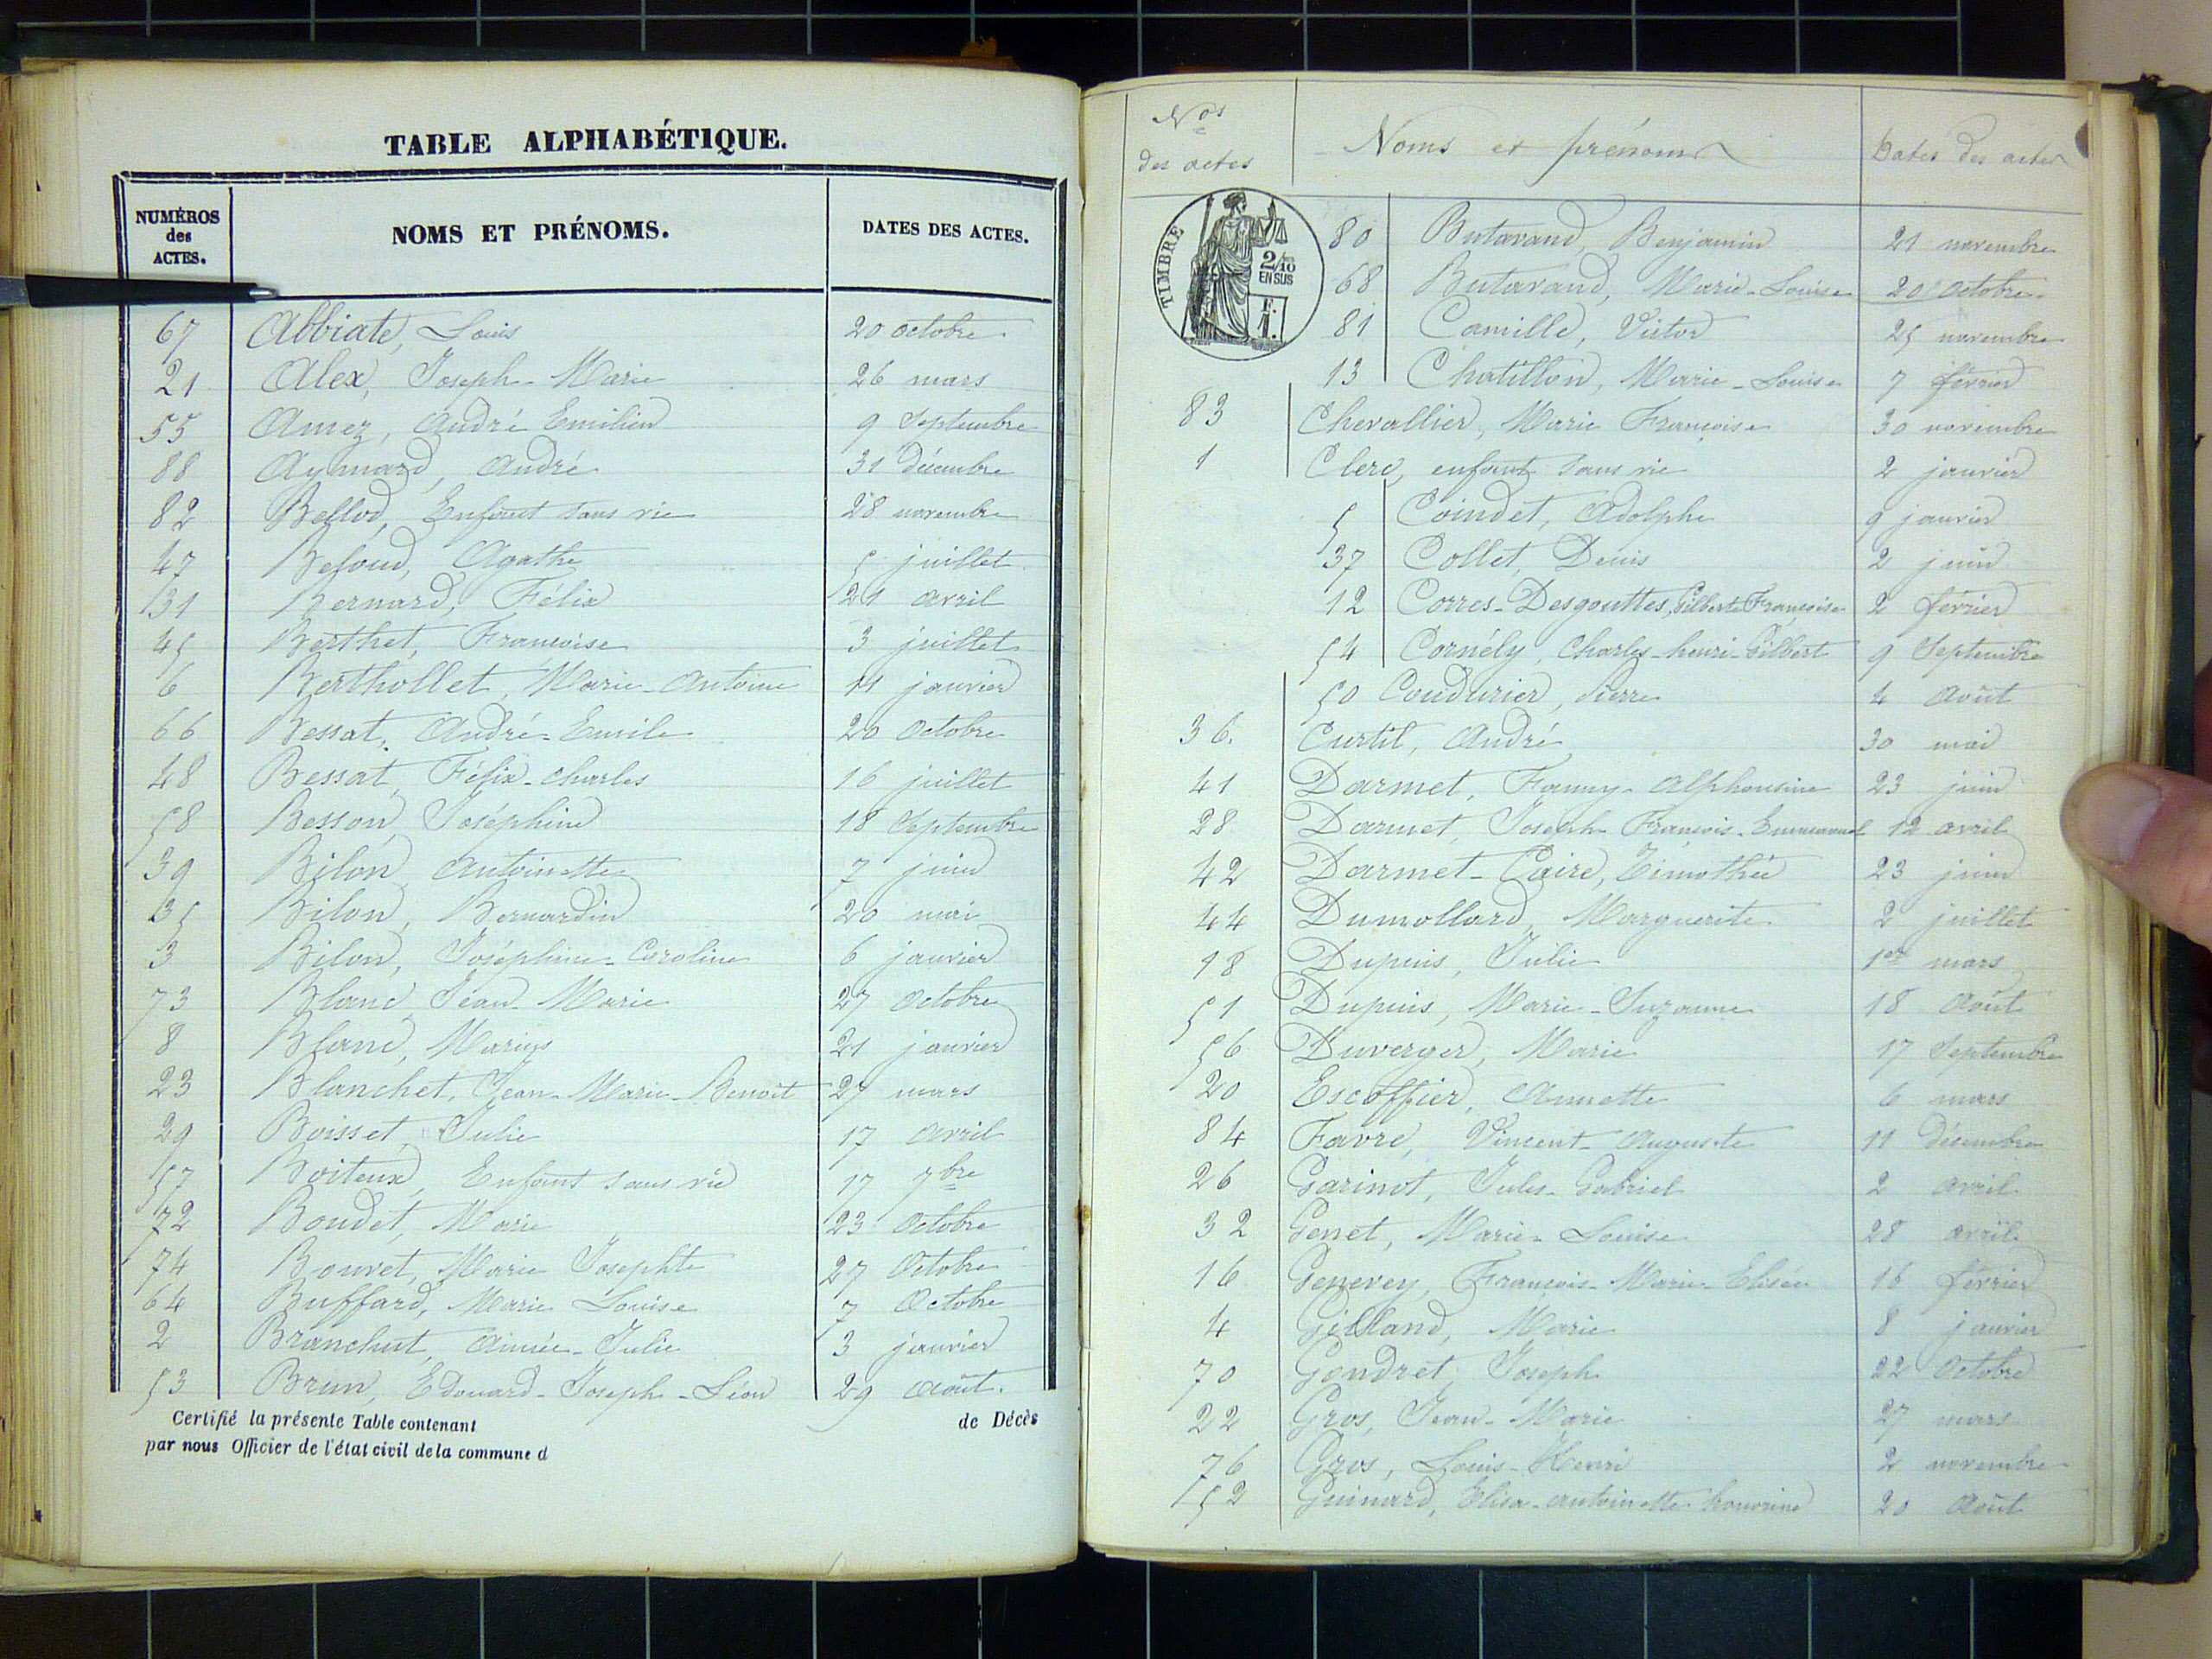 TABLE ALPHABÉTIQUE.
NUMÉROS des ACTES. NOMS ET PRÉNOMS. DATES DES ACTES.
67 Abbiate, Louis 20 octobre
21 Alex, Joseph-Marie 26 mars
55 Amez, André Emilien 9 Septembre
88 Aymard, André 31 Décembre
82 Bellod, Enfant sans vie 28 novembre
47 Belond, Agathe 5 juillet
31 Bernard, Félix 21 avril
45 Berthet, Françoise 3 juillet
6 Berthollet, Marie-Antoine 11 janvier
66 Bessat, André-Emile 20 Octobre
48 Bessat, Félix-Charles 16 juillet
58 Besson, Joséphine 18 Septembre
39 Bilon, Antoinette 7 juin
35 Bilon, Bernardin 20 mai
3 Bilon, Joséphine-Caroline 6 janvier
73 Blanc, Jean-Marie 27 Octobre
8 Blanc, Marius 21 janvier
23 Blanchet, Jean-Marie-Benoît 27 mars
29 Boisset, Julie 17 avril
57 Boiteux, Enfant sans vie 17 7bre
72 Boudet, Marie 23 Octobre
74 Bouvet, Marie Josephte 27 Octobre
64 Buffard, Marie Louise 7 Octobre
2 Branchut, Aimée-Julie 3 janvier
53 Brun, Edouard-Joseph-Léon 29 août.
Certifié la présente Table contenant de Décès
par nous Officier de l'état civil de la commune d
Nos des actes Noms et prénoms Dates des actes
TIMBRE 2/10 EN SUS F. 1.
80 Butavand, Benjamin 21 novembre
68 Butavand, Marie-Louise 20 octobre
81 Camille, Victor 25 novembre
13 Chatillon, Marie-Louise 7 février
83 Chevallier, Marie Françoise 30 novembre
1 Clerc, enfant sans vie 2 janvier
5 Coindet, Adolphe 9 janvier
37 Collet, Denis 2 juin
12 Corres-Desgouttes, Gilberte Françoise 2 février
54 Cornély, Charles-henri-Gilbert 9 Septembre
50 Coudurier, Pierre 4 Août
36. Curtil, André 30 mai
41 Darmet, Fanny-Alphonsine 23 juin
28 Darmet, Joseph-François-Emmanuel 12 avril
42 Darmet-Caire, Timothée 23 juin
44 Dumollard, Marguerite 2 juillet
18 Dupuis, Julie 1er mars
51 Dupuis, Marie-Suzanne 18 Août
56 Duverger, Marie 17 Septembre
20 Escoffier, Annette 6 mars
84 Favre, Vincent-Auguste 11 Décembre
26 Garinot, Jules-Gabriel 2 avril
32 Genet, Marie-Louise 28 avril
16 Genevey, François-Marie-Elisée 16 février
4 Gilland, Marie 8 janvier
70 Gondret, Joseph 22 Octobre
22 Gros, Jean-Marie 27 mars
76 Gros, Louis-Henri 2 novembre
52 Guinard, Elisa-Antoinette-honorine 20 Août